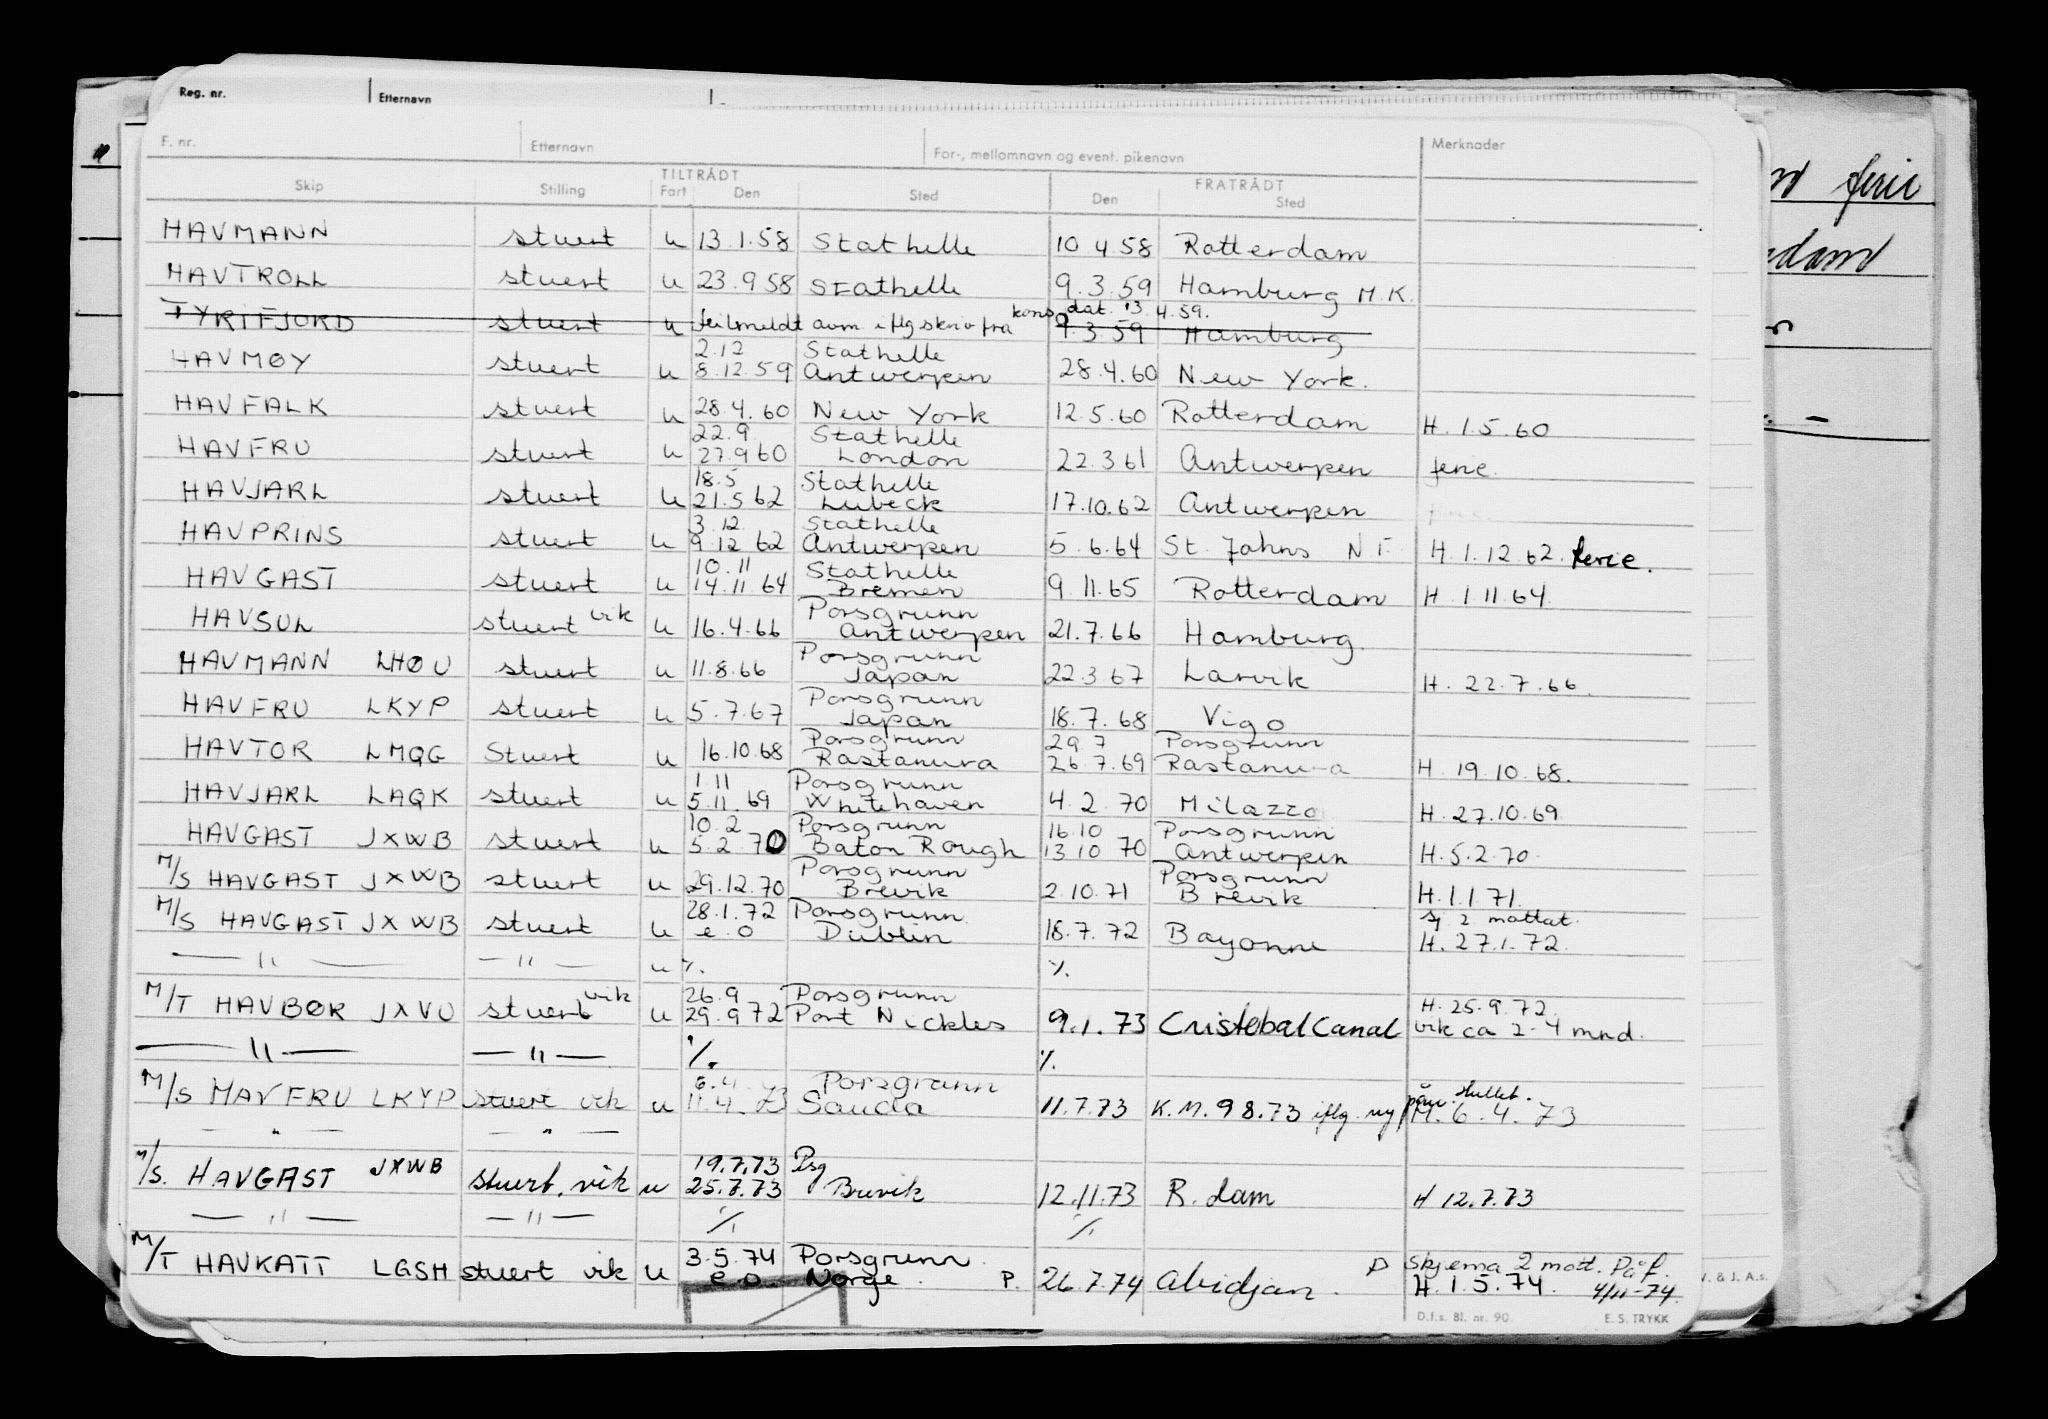 Reg. nr. Etternavn
F. nr. Etternavn For-, mellomnavn og event. pikenavn Merknader
TILTRÅDT FRATRÅDT
Skip Stilling Fart Den Sted Den Sted
HAVMANN stuert u 13.1.58 Stathelle 10 4.58 Rotterdam
HAVTROLL stuert u 23.9 58 Stathelle 9.3.59 Hamburg M.K.
kons dat. 13.4.59.
TYRIFJORD stuert u feilmeldt avm iflg skriv fra 9.3.59 Hamburg
2.12 Stathelle
HAVMØY stuert u 8.12.59 Antwerpen 28.4.60 New York.
HAVFALK stuert u 28.4.60 New York 12.5.60 Rotterdam H. 1.5.60
22.9 Stathelle
HAVFRU stuert u 27.9 60 London 22.3 61 Antwerpen ferie.
18.5 Stathelle
HAVJARL stuert u 21.5 62 Lubeck 17.10.62 Antwerpen
3.12 Stathelle
HAVPRINS stuert u 9.12 62 Antwerpen 5.6.64 St. Johns N F. H.1.12.62. ferie.
10.11 Stathelle
HAVGAST stuert u 14.11 64 Bremen 9.11.65 Rotterdam H 1 11 64
Porsgrunn
HAVSOL stuert vik u 16.4.66 Antwerpen 21.7.66 Hamburg.
Porsgrunn
HAVMANN LHØU stuert u 11.8.66 Japan 22.3 67 Larvik H. 22.7.66.
Porsgrunn
HAVFRU LKYP stuert u 5.7.67 Japan 18.7.68 Vigo
Porsgrunn 29 7 Porsgrunn
HAVTOR LMQG Stuert u 16.10.68 Rastanura 26.7.69 Rastanura H. 19.10.68.
1 11 Porsgrunn
HAVJARL LAQK stuert u 5.11.69 Whitehaven 4.2.70 Milazzo H. 27.10.69
10.2 Porsgrunn 16.10 Porsgrunn
HAVGAST JXWB stuert u 5.2.70 Baton Rough 13 10 70 Antwerpen H.5.2.70.
Porsgrunn Porsgrunn
M/S HAVGAST JXWB stuert u 29.12.70 Brevik 2.10.71 Brevik H.1.1.71.
28.1.72 Porsgrunn Sj 2 mottat.
M/S HAVGAST JXWB stuert u e.o Dublin 18.7.72 Bayonne H. 27.1.72.
— " — — " — u ٪. ٪.
26.9 Porsgrunn H. 25.9.72.
M/T HAVBØR JXVU stuert vik u 29.9 72 Port Nickles 9.1.73 Cristobal Canal vik ca 2-4 mnd.
— " — — " — ٪. ٪.
6.4 Porsgrunn
M/S HAVFRU LKYP stuert vik u 11.4.73 Sauda 11.7.73 K.M. 9 8.73 iflg. ny M. 6.4.73
— " — — " —
19.7.73 Psg
M/S. HAVGAST JXWB stuert. vik u 25.7.73 Brevik 12.11.73 R.dam H 12.7.73
— " — — " — ٪ ٪
3.5.74 Porsgrunn. D Skjema 2 mott. Påf.
M/T HAVKATT LGSH stuert vik u e o. Norge. P. 26.7.74 Abidjan. H.1.5.74. 4/11-74.
V. & J. A.s.
D.f.s. Bl. nr. 90. E. S. TRYKK
ferie